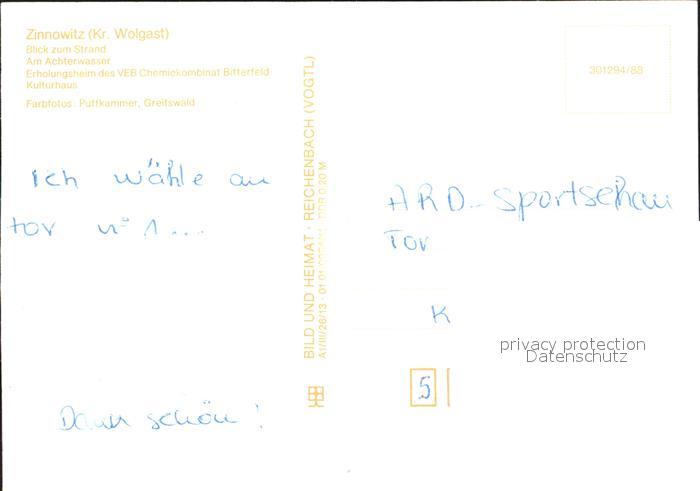 Zinnowitz (Kr. Wolgast)
Blick zum Strand
Am Achterwasser
Erholungsheim des VEB Chemiekombinat Bitterfeld
Kulturhaus
Farbfotos: Puttkammer, Greifswald
301294/88
BILD UND HEIMAT · REICHENBACH (VOGTL)
A1/III/26/13 · 01 01 DDR 0,20 M
Ich wähle an
tor nº 1...
Dann schön!
ARD-Sportschau
Tor
K
5
privacy protection
Datenschutz